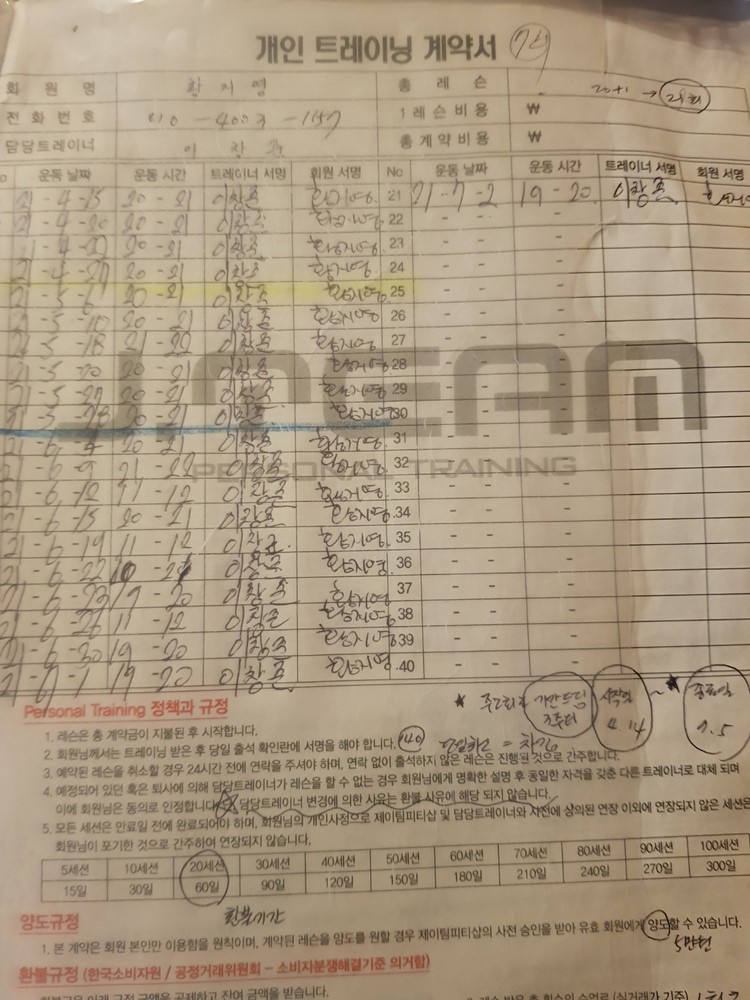 개인 트레이닝 계약서
회 원 명 황지영 총 레 슨 20+1 → 21회
전 화 번 호 1 레슨 비용 ₩
담당트레이너 이창준 총 계약 비용 ₩
운동 날짜 운동 시간 트레이너 서명 회원 서명 No 운동 날짜 운동 시간 트레이너 서명 회원 서명
21-4-15 20-21 이창준 황지영 21 21-7-2 19-20 이창준
21-4-20 20-21 이창준 황지영 22 - - -
20-21 이창준 황지영 23 - - -
20-21 이창준 황지영 24 - - -
21-5-6 20-21 이창준 황지영 25 - - -
20-21 이창준 황지영 26 - - -
21-5-18 21-22 이창준 황지영 27 - - -
21-5-20 20-21 이창준 황지영 28 - - -
20-21 이창준 황지영 29 - - -
20-21 이창준 황지영 30 - - -
J.TEAM
20-21 이창준 황지영 31 - - -
21-6-9 21-22 이창준 황지영 32 - - -
PERSONAL TRAINING
21-6-12 11-12 이창준 황지영 33 - - -
21-6-15 20-21 이창준 황지영 34 - - -
21-6-19 11-12 이창준 황지영 35 - - -
21-6-22 이창준 황지영 36 - - -
21-6-23 19-20 이창준 황지영 37 - - -
21-6-26 11-12 이창준 황지영 38 - - -
21-6-30 19-20 이창준 황지영 39 - - -
19-20 이창준 황지영 40 - - -
★ 주2회 시작일 4.14 ~ ★ 종료일 7.5
Personal Training 정책과 규정
1. 레슨은 총 계약금이 지불된 후 시작합니다.
2. 회원님께서는 트레이닝 받은 후 당일 출석 확인란에 서명을 해야 합니다. 당일취소 = 차감
3. 예약된 레슨을 취소할 경우 24시간 전에 연락을 주셔야 하며, 연락 없이 출석하지 않은 레슨은 진행된 것으로 간주합니다.
4. 예정되어 있던 혹은 퇴사에 의해 담당트레이너가 레슨을 할 수 없는 경우 회원님에게 명확한 설명 후 동일한 자격을 갖춘 다른 트레이너로 대체 되며
이에 회원님은 동의로 인정합니다. 담당트레이너 변경에 의한 사유는 환불 사유에 해당 되지 않습니다.
5. 모든 세션은 만료일 전에 완료되어야 하며, 회원님의 개인사정으로 제이팀피티샵 및 담당트레이너와 사전에 상의된 연장 이외에 연장되지 않은 세션은
회원님이 포기한 것으로 간주하여 연장되지 않습니다.
5세션 10세션 20세션 30세션 40세션 50세션 60세션 70세션 80세션 90세션 100세션
15일 30일 60일 90일 120일 150일 180일 210일 240일 270일 300일
환불기간
양도규정
1. 본 계약은 회원 본인만 이용함을 원칙이며, 계약된 레슨을 양도를 원할 경우 제이팀피티샵의 사전 승인을 받아 유효 회원에게 양도할 수 있습니다.
5만원
환불규정 (한국소비자원 / 공정거래위원회 – 소비자분쟁해결기준 의거함)